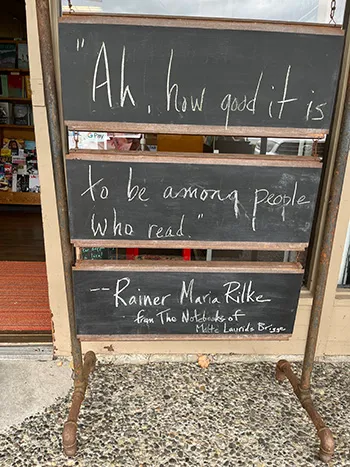 "Ah, how good it is
to be among people
who read."
-- Rainer Maria Rilke
from The Notebooks of
Malte Laurids Brigge
G Pay